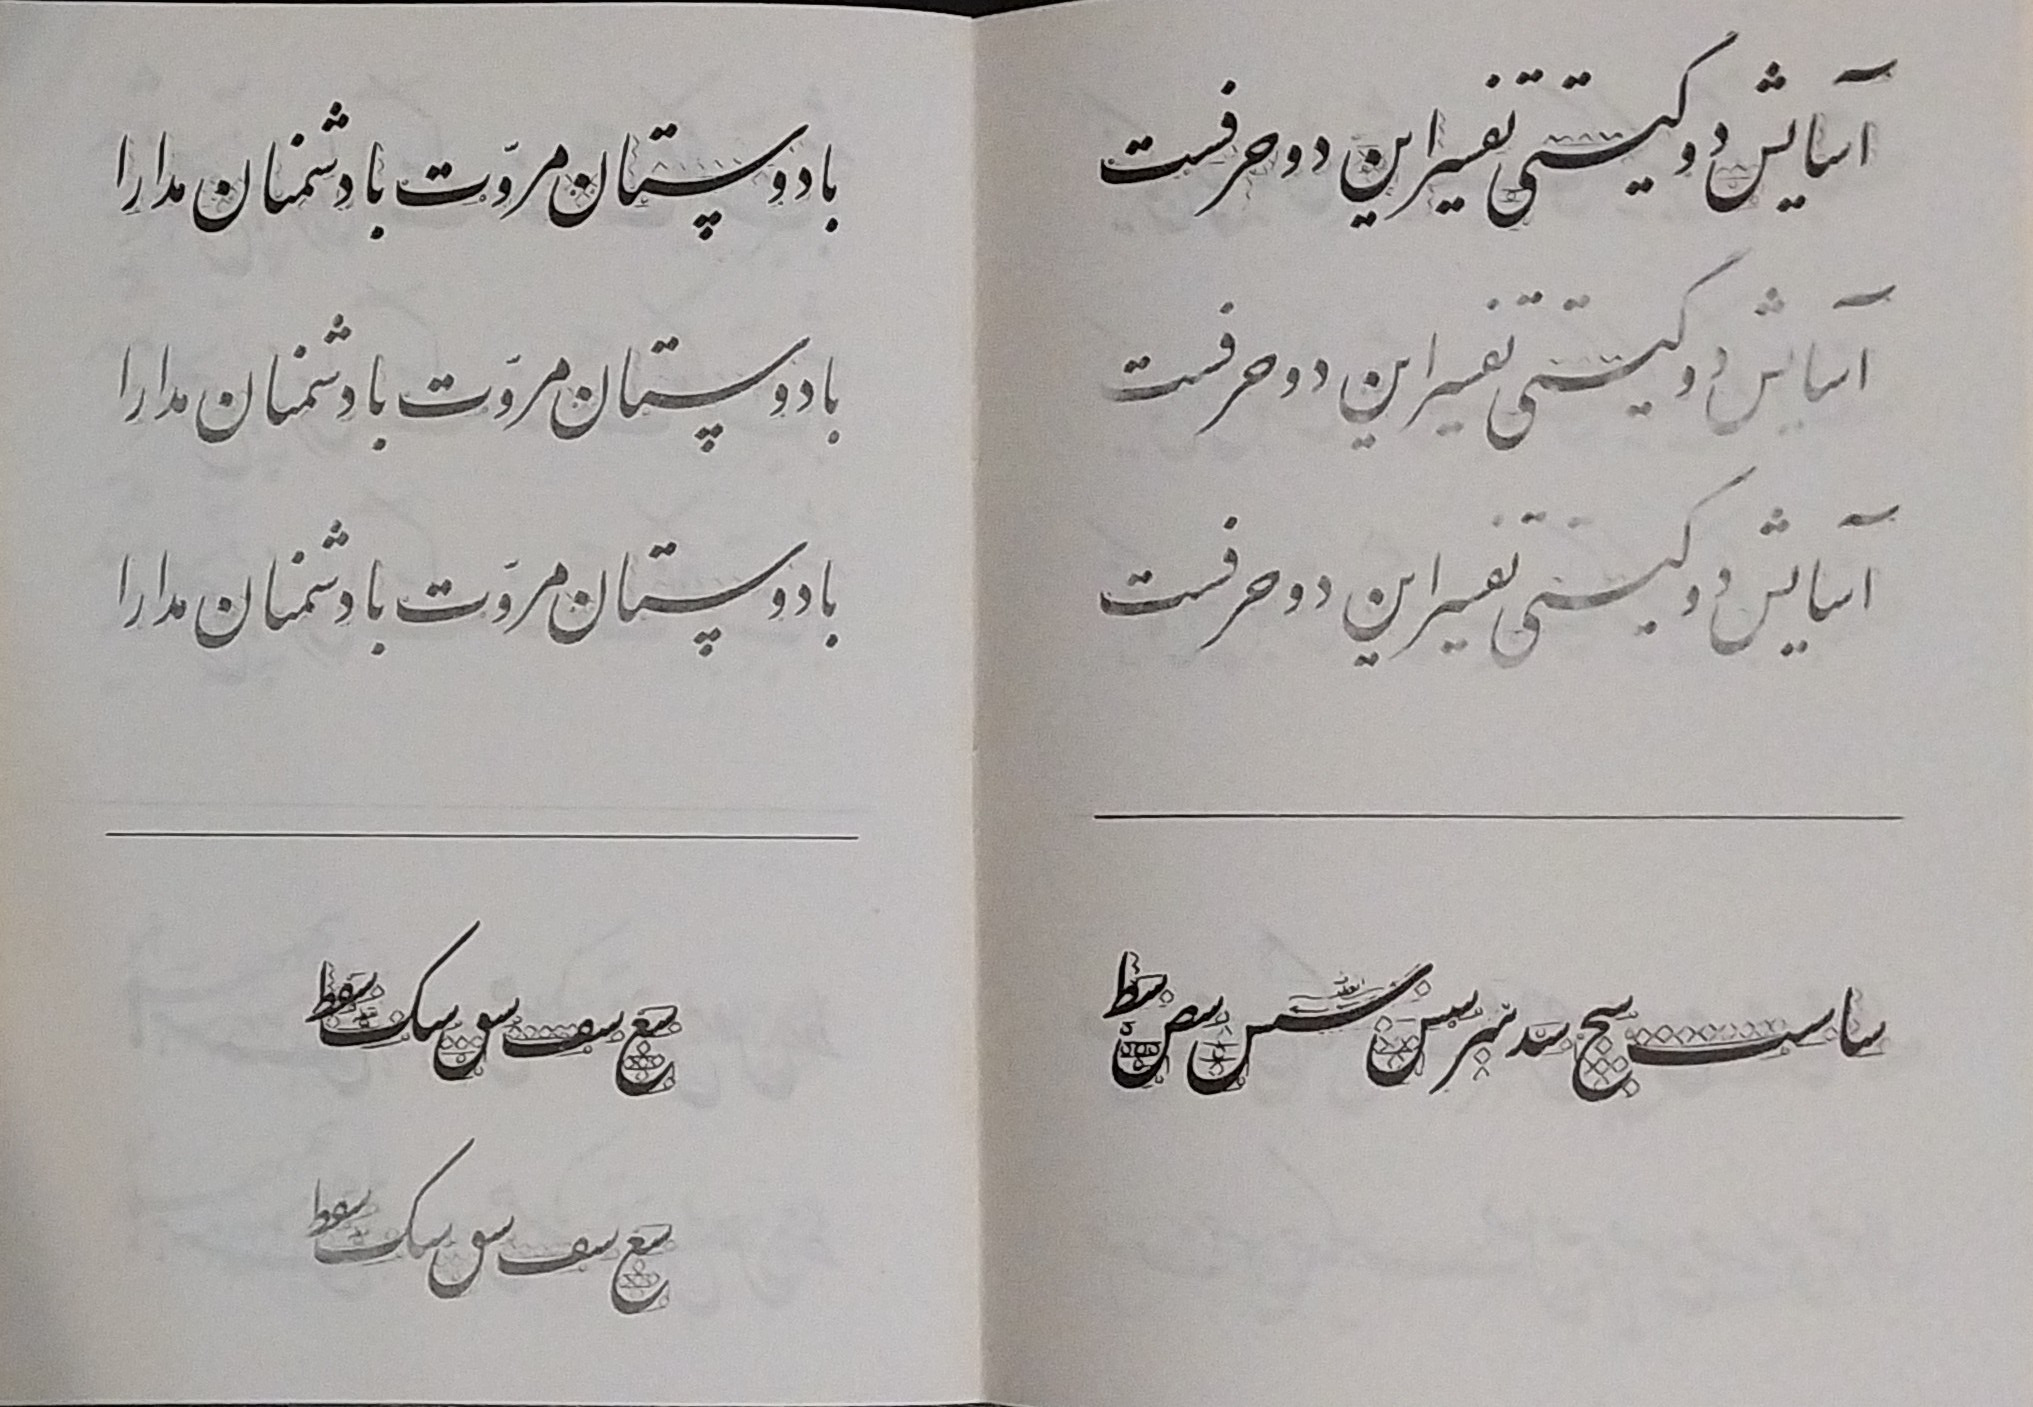 آسایش دو گیتی تفسیر این دو حرفست
آسایش دو گیتی تفسیر این دو حرفست
آسایش دو گیتی تفسیر این دو حرفست
سا ست سج سد سر سس سس سص سط
با دوستان مروّت با دشمنان مدارا
با دوستان مروّت با دشمنان مدارا
با دوستان مروّت با دشمنان مدارا
سع سف سق سک سقط
سع سف سق سک سقط